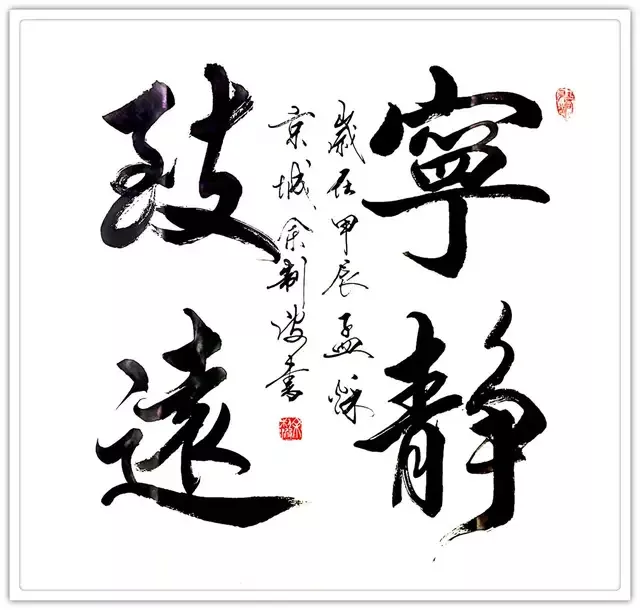 寧靜
致遠
歲在甲辰孟
京城余書